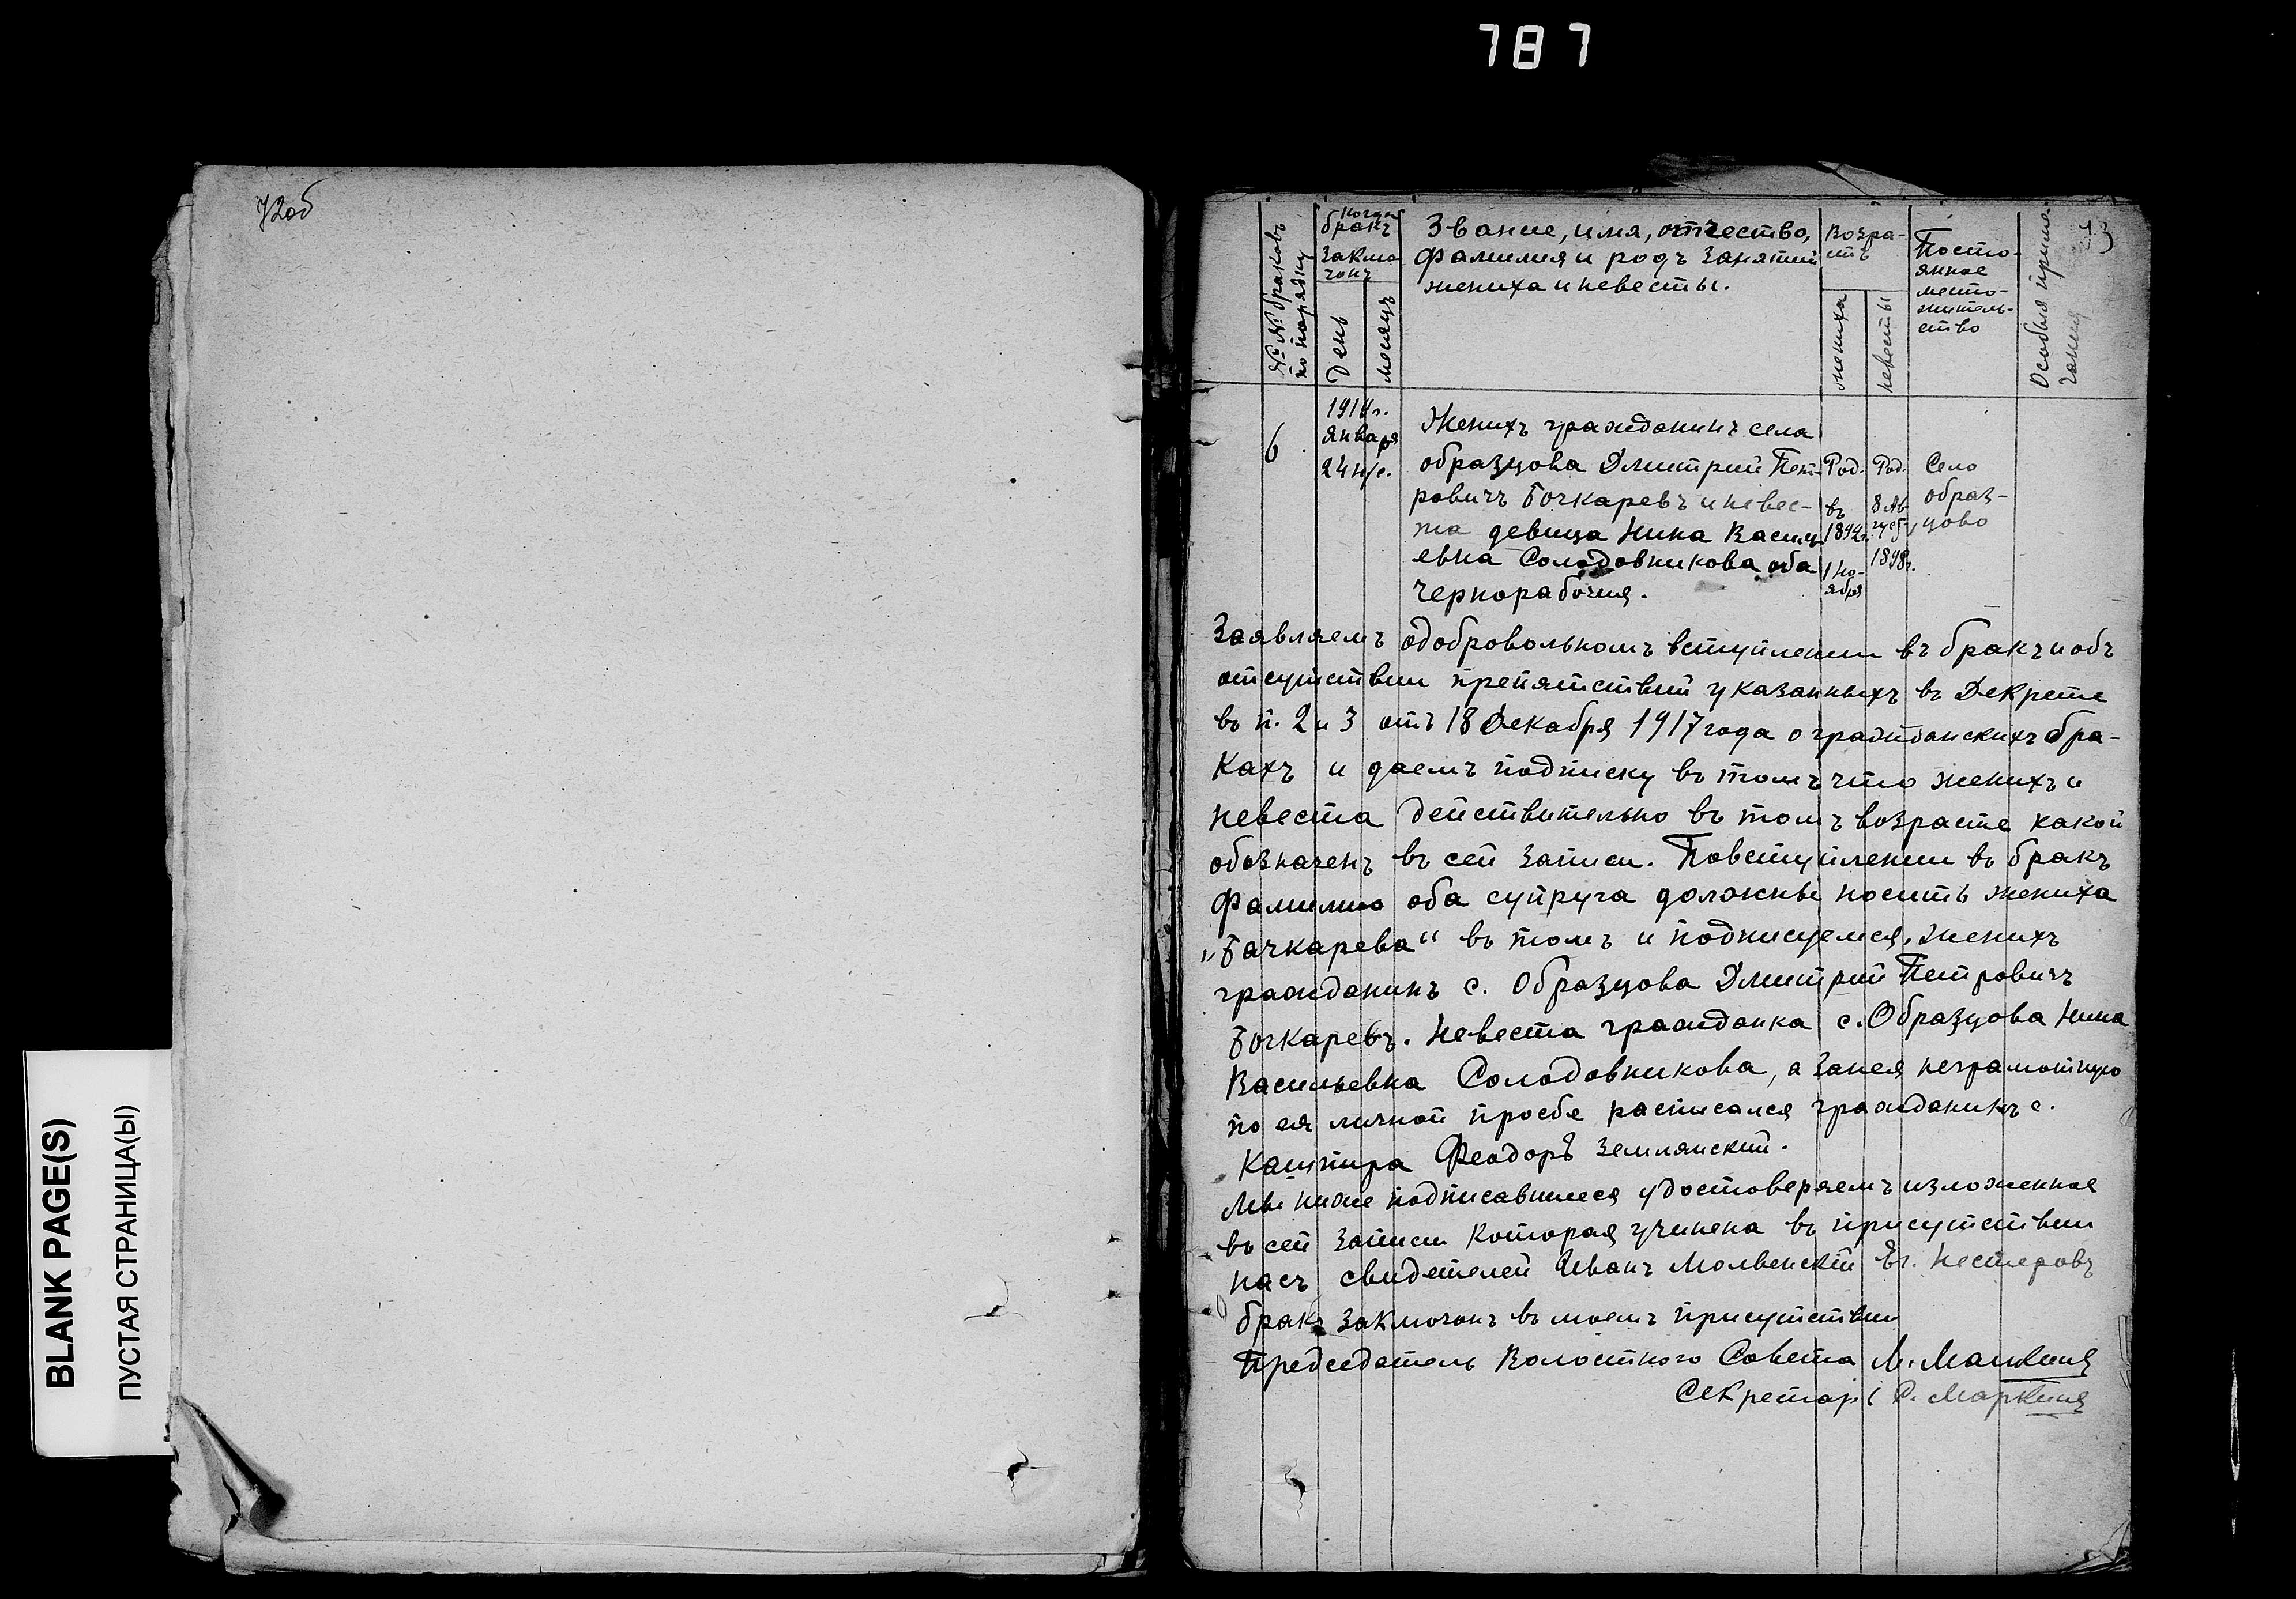 787
72об
BLANK PAGE(S)
ПУСТАЯ СТРАНИЦА(Ы)
73
№№ браковъ по порядку
когда бракъ заключонъ
День
месяцъ
Звание, имя, отчество,
фамилия и родъ занятий
жениха и невесты.
Возрастъ
жениха
невесты
Посто-
янное
место-
житель-
ство
Особыя приме-
чания
6
1919г.
Января
24 н/с.
Женихъ гражданинъ села
образцова Дмитрий Пет-
ровичъ Бочкаревъ и невес-
та девица Нина Василь-
евна Солодовникова оба
чернорабочия.
Род.
въ
1894г.
1 Но-
ября
Род.
8 Ав-
густ.
1898г.
Село
образ-
цово
Заявляемъ одобровольномъ вступлении въ бракъ и объ
отсутствии препятствий указанныхъ въ Декрете
въ п. 2 и 3 отъ 18 Декабря 1917 года о гражданскихъ бра-
кахъ и даемъ подписку въ томъ что женихъ и
невеста действительно въ томъ возрасте какой
обозначенъ въ сей записи. Повступлении въ бракъ
фамилию оба супруга должны носить жениха
„Бачкарева“ въ томъ и подписуемся, женихъ
гражданинъ с. Образцова Дмитрий Петровичъ
Бочкаревъ. Невеста гражданка с. Образцова Нина
Васильевна Солодовникова, а занея неграмотную
по ея личной просбе расписался гражданинъ с.
Каштира Феодоръ Землянский.
Мы ниже подписавшиеся удостоверяемъ изложенное
въ сей записи которая учинена въ присутствии
насъ свидетелей Иванъ Молвенский Ег. Нестеровъ
бракъ заключонъ въ моемъ присутствии
Председатель Волостного Совета М.
Секретарь С. Маркинъ